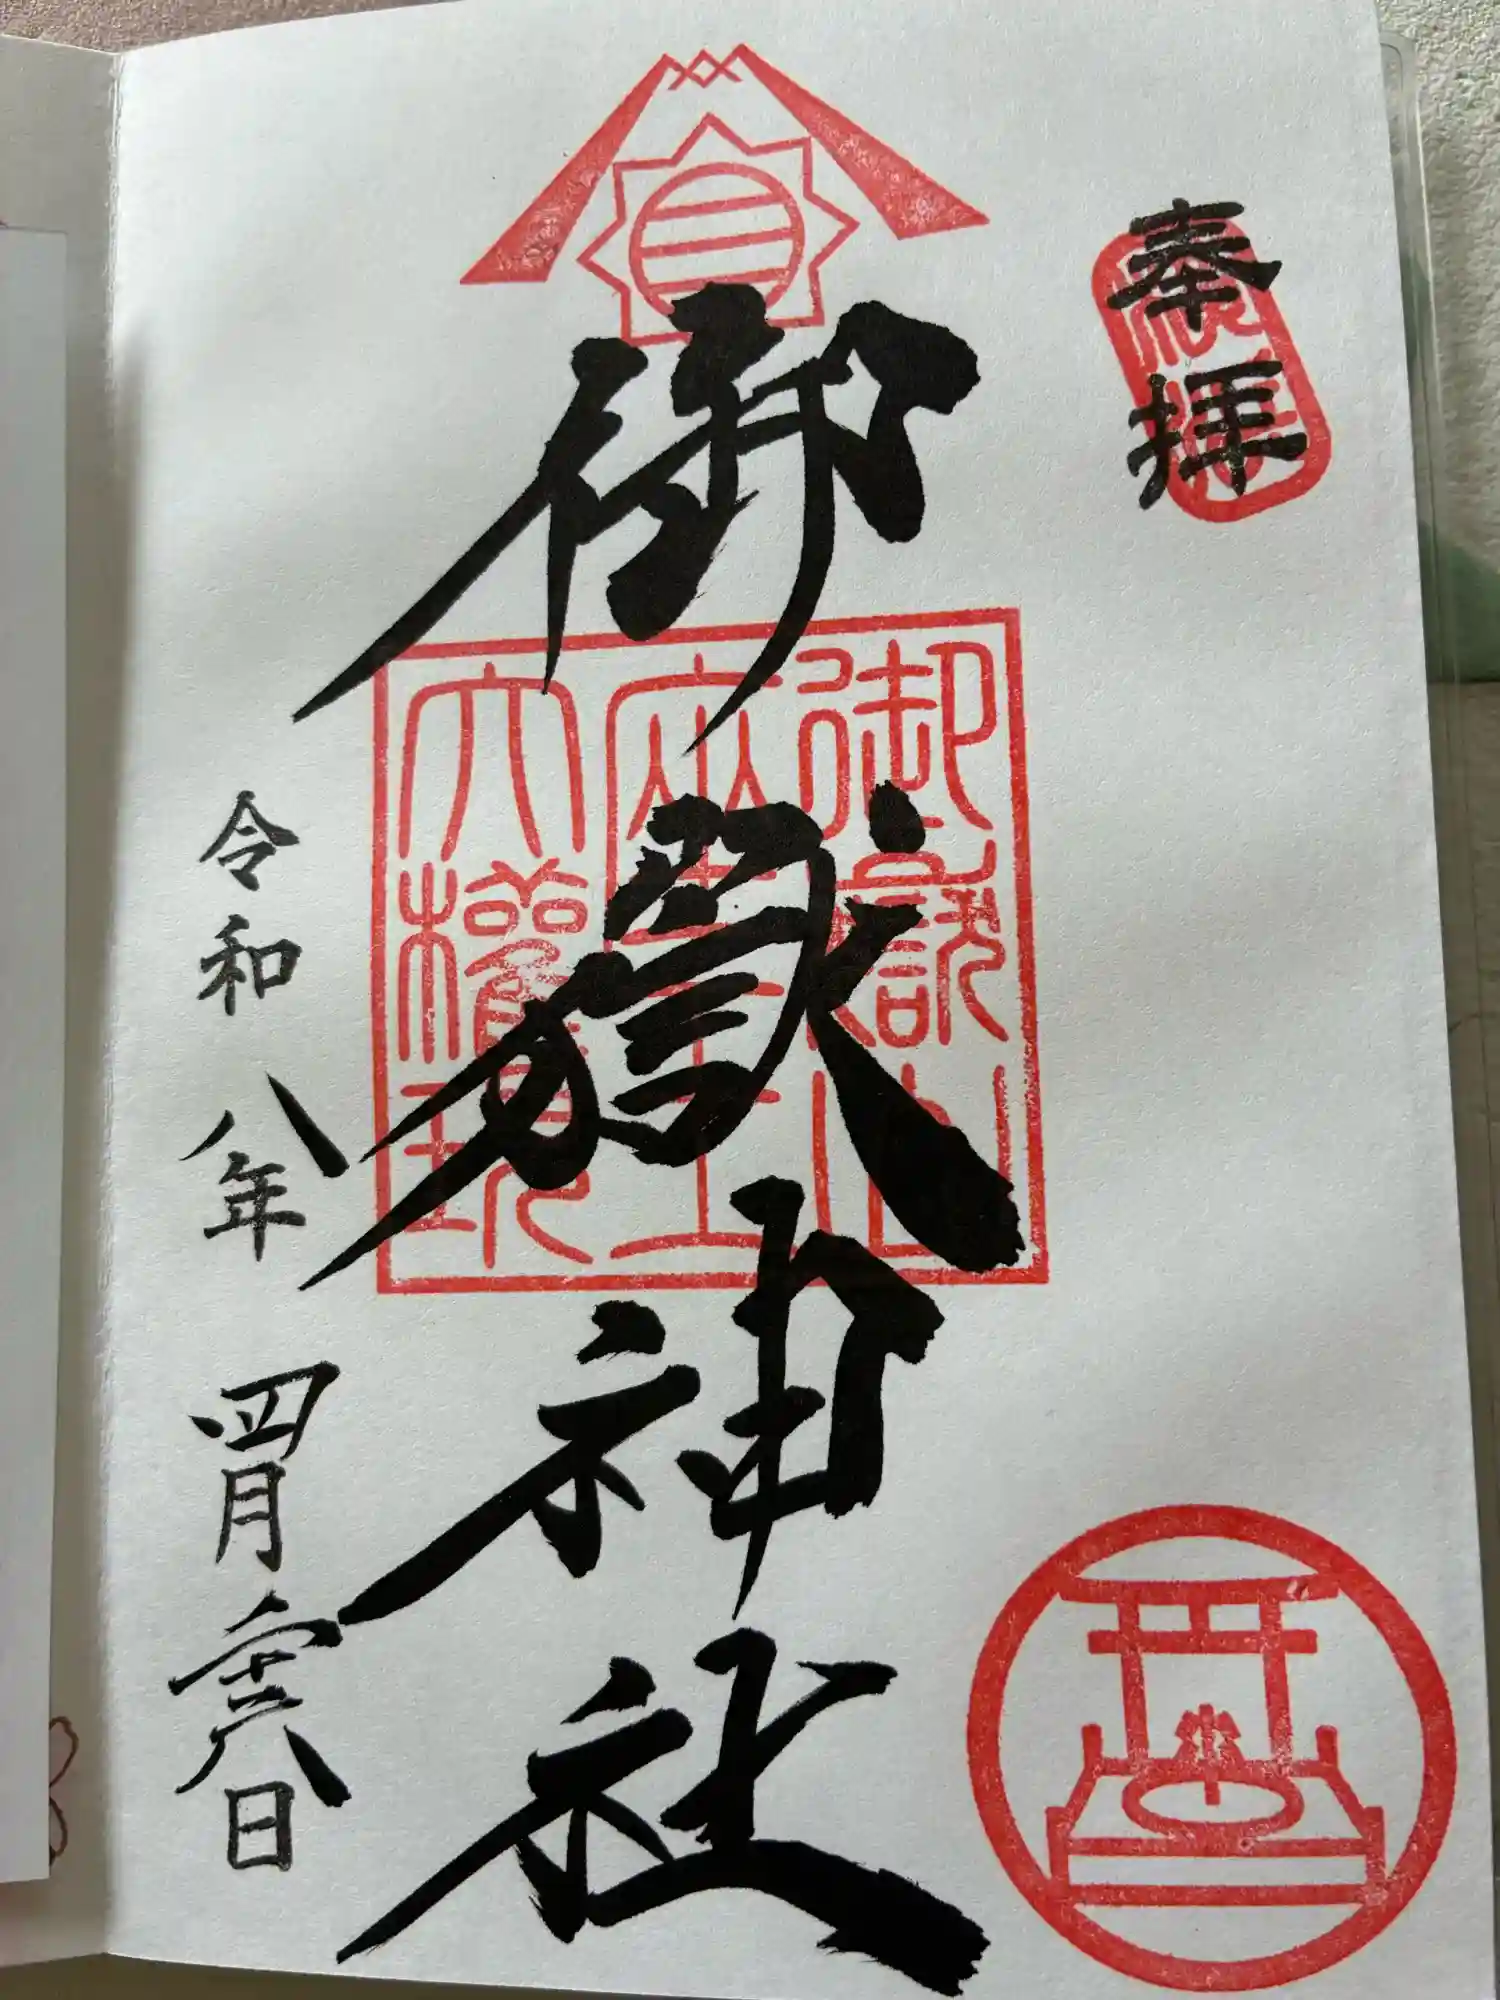 奉拝
御嶽神社
御嶽山
座王
大權現
令和八年 四月二十六日